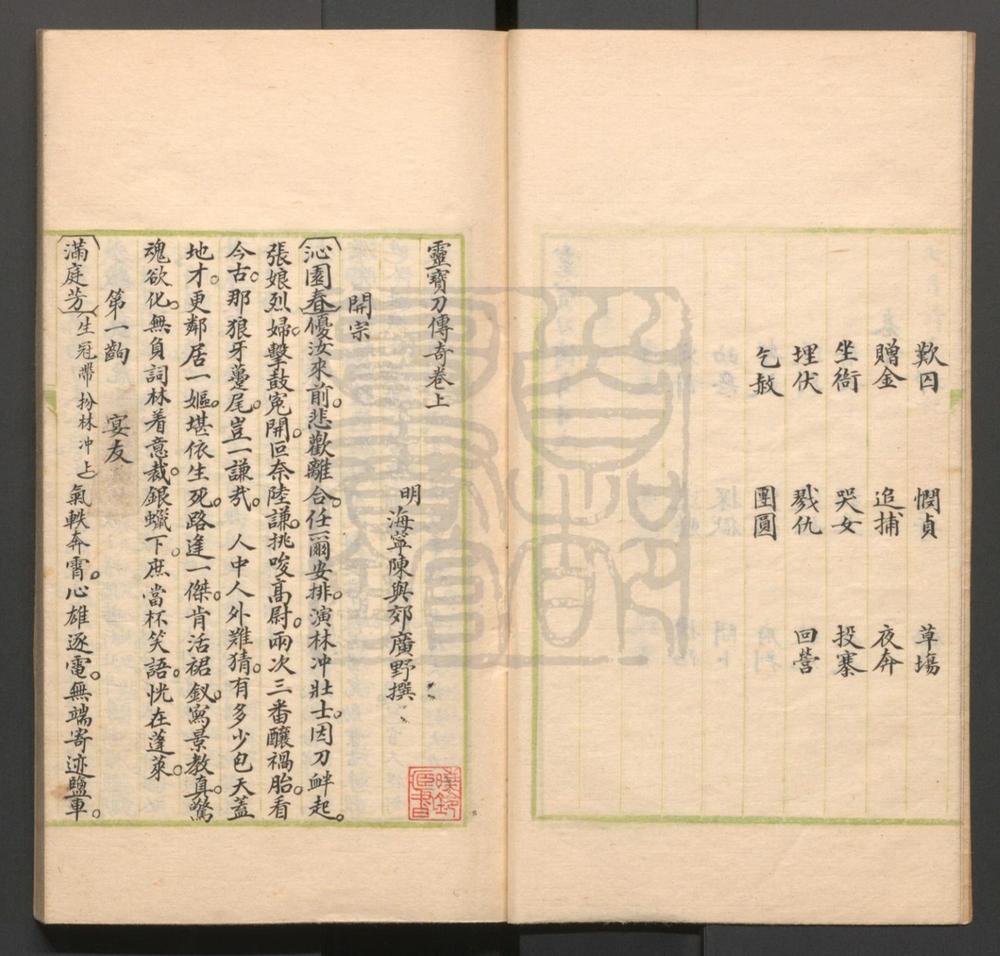 歎囚　憫貞　草場
贈金　追捕　夜奔
坐衙　哭女　投寨
埋伏　戮仇　回營
乞赦　團圓
靈寶刀傳奇卷上
明　海寧陳與郊廣野撰
開宗
沁園春優汝來前。悲歡離合。任爾安排。演林冲壯士。因刀衅起。
張娘烈婦。擊鼓寃開。叵奈陸謙。挑唆高尉。兩次三番釀禍胎。看
今古。那狼牙蠆尾。豈一謙哉。　人中人外難猜。有多少包天蓋
地才。更鄰居一嫗。堪依生死。路逢一傑。肯活裙釵。寫景教真。驚
魂欲化。無負詞林着意裁。銀蠟下。庶當杯笑語。恍在蓬萊。
第一齣　宴友
滿庭芳生冠帶扮林冲上氣軼奔霄。心雄逐電。無端寄迹鹽車。